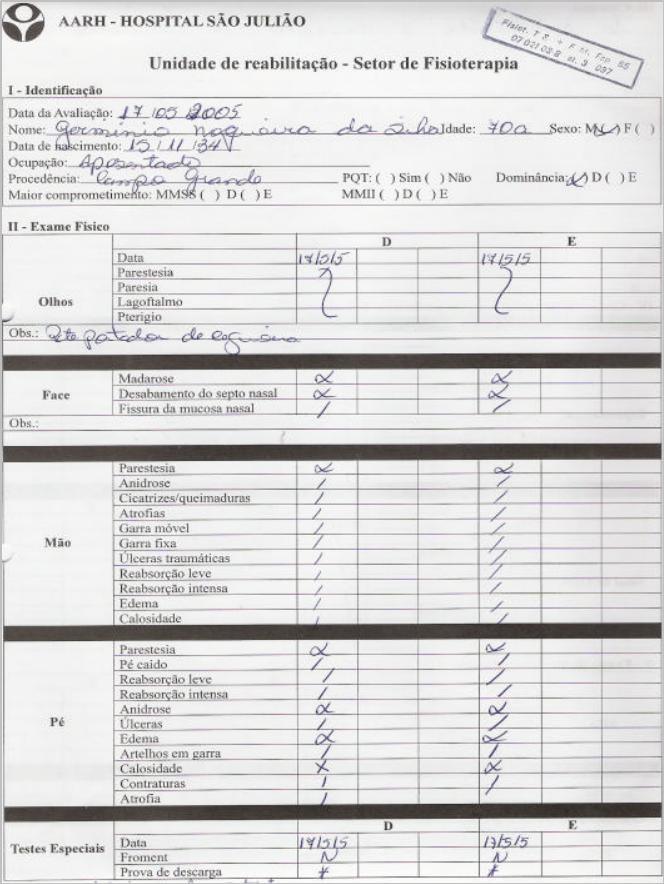 AARH - HOSPITAL SÃO JULIÃO
Unidade de reabilitação - Setor de Fisioterapia
I - Identificação
Data da Avaliação: 17 05 2005
Nome: Idade: 70a Sexo: M( ) F ( )
Data de nascimento: 15/11/34
Ocupação: Aposentado
Procedência: Campo Grande PQT: ( ) Sim ( ) Não Dominância: ( ) D ( ) E
Maior comprometimento: MMSS ( ) D ( ) E MMII ( ) D ( ) E
II - Exame Físico
D E
Data 17/5/5 17/5/5
Parestesia
Paresia
Olhos Lagoftalmo
Pterigio
Obs.:
Madarose
Face Desabamento do septo nasal
Fissura da mucosa nasal / /
Obs.:
Parestesia
Anidrose / /
Cicatrizes/queimaduras / /
Atrofias / /
Garra móvel / /
Mão Garra fixa / /
Úlceras traumáticas / /
Reabsorção leve / /
Reabsorção intensa / /
Edema / /
Calosidade / /
Parestesia
Pé caido / /
Reabsorção leve / /
Reabsorção intensa / /
Anidrose
Pé Úlceras / /
Edema
Artelhos em garra / /
Calosidade X
Contraturas / /
Atrofia /
D E
Data 17/5/5 17/5/5
Testes Especiais Froment N N
Prova de descarga